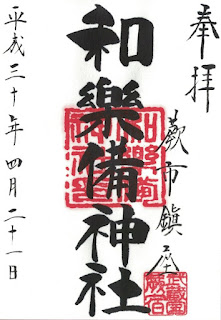 奉拝
蕨市鎮座
和樂備神社
平成三十年四月二十一日
武蔵
蕨宿